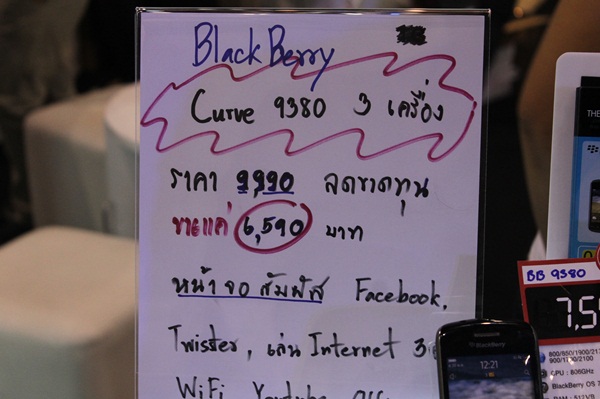 BlackBerry
Curve 9380 3 เครื่อง
ราคา 9,990 ลดขาดทุน
ขายแค่ 6,590 บาท
หน้าจอสัมผัส Facebook,
Twister, เล่น Internet 3
WiFi Youtube
THE
BB 9380
7,5
800/850/1900/21
900/1700/2100
CPU : 806GHz
BlackBerry OS 7
RAM : 512VB
BlackBerry
12:21